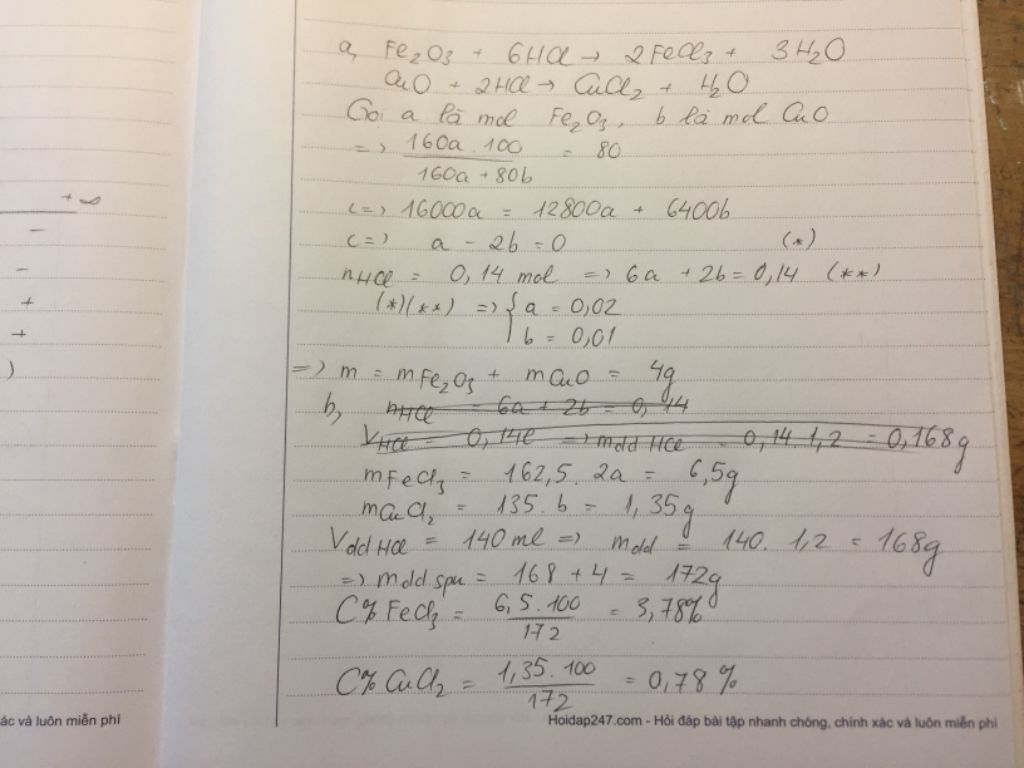 a, Fe2O3 + 6HCl → 2FeCl3 + 3H2O
CuO + 2HCl → CuCl2 + H2O
Gọi a là mol Fe2O3, b là mol CuO
=> 160a . 100 / 160a + 80b = 80
<=> 16000a = 12800a + 6400b
<=> a - 2b = 0 (*)
nHCl = 0,14 mol => 6a + 2b = 0,14 (**)
(*)(**) => { a = 0,02
b = 0,01
=> m = mFe2O3 + mCuO = 4g
b, nHCl = 6a + 2b = 0,14
VHCl = 0,14l => mdd HCl = 0,14. 1,2 = 0,168g
mFeCl3 = 162,5. 2a = 6,5g
mCuCl2 = 135. b = 1,35g
Vdd HCl = 140 ml => mdd = 140. 1,2 = 168g
=> mdd spu = 168 + 4 = 172g
C% FeCl3 = 6,5 . 100 / 172 = 3,78%
C% CuCl2 = 1,35 . 100 / 172 = 0,78 %
+ ∞
−
−
+
+
)
ác và luôn miễn phí
Hoidap247.com - Hỏi đáp bài tập nhanh chóng, chính xác và luôn miễn phí